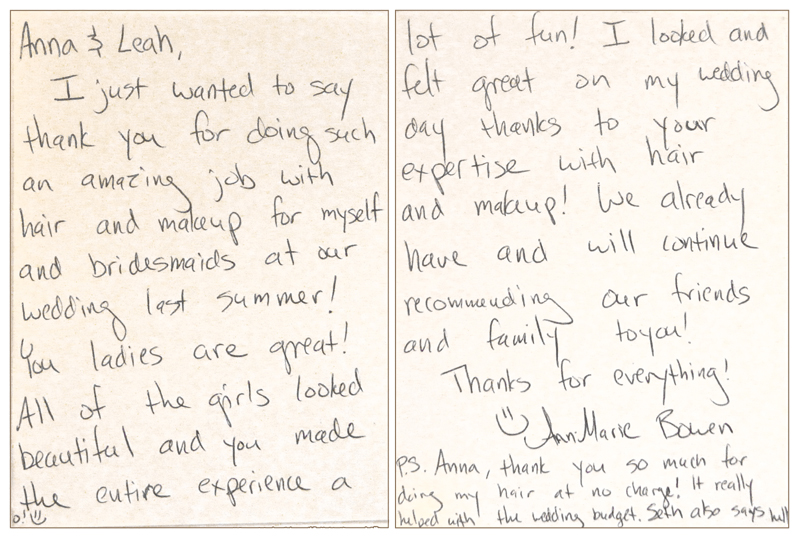 Anna & Leah,
I just wanted to say
thank you for doing such
an amazing job with
hair and makeup for myself
and bridesmaids at our
wedding last summer!
You ladies are great!
All of the girls looked
beautiful and you made
the entire experience a
lot of fun! I looked and
felt great on my wedding
day thanks to your
expertise with hair
and makeup! We already
have and will continue
recommending our friends
and family to you!
Thanks for everything!
AnnMarie Bowen
P.S. Anna, thank you so much for
doing my hair at no charge! It really
helped with the wedding budget. Seth also says